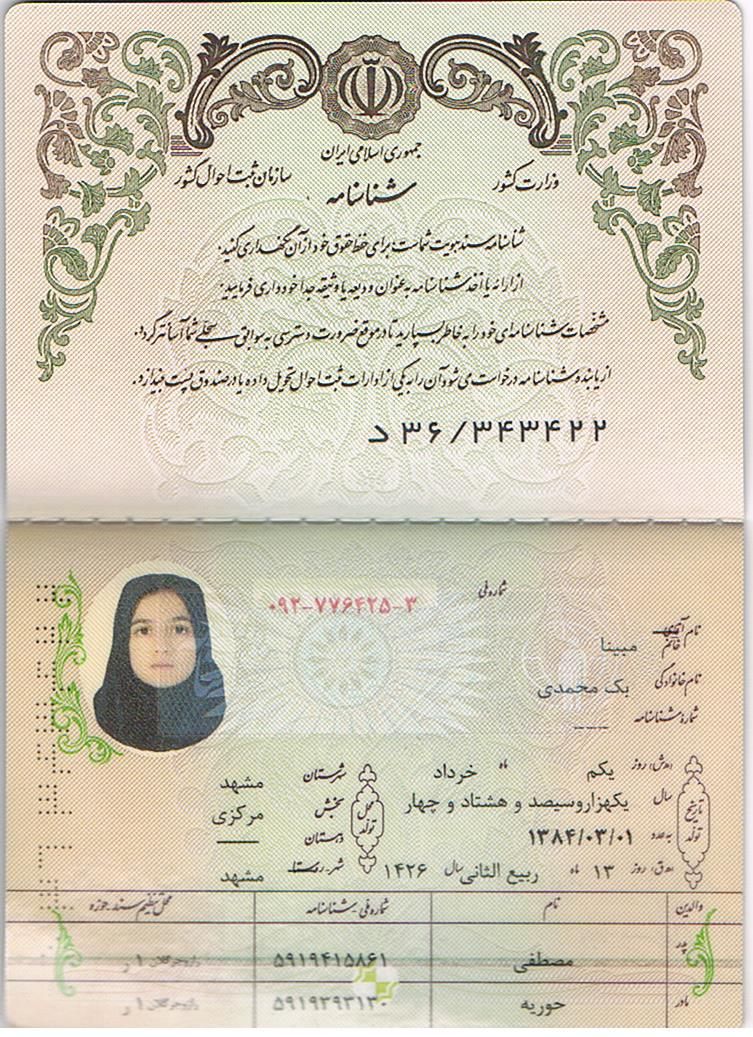 جمهوری اسلامی ایران
وزارت کشور
سازمان ثبت احوال کشور
شناسنامه
شناسنامه سند هویت شماست برای حفظ حقوق خود از آن نگهداری کنید.
از ارائه یا اخذ شناسنامه به عنوان ودیعه یا وثیقه جداً خودداری فرمایید.
مشخصات شناسنامه‌ای خود را به خاطر بسپارید تا در موقع ضرورت دسترسی به سوابق سجلی شما آسانتر گردد.
از یابنده شناسنامه درخواست می‌شود آن را به یکی از ادارات ثبت احوال تحویل داده یا در صندوق پست بیندازد.
د ۳۶/۳۴۳۴۲۲
شماره ملی ۰۹۲-۷۷۶۴۲۵-۳
نام آقای خانم مبینا
نام خانوادگی بک محمدی
شماره شناسنامه ----
تاریخ تولد
(ه‍.ش) روز یکم ماه خرداد
سال یکهزاروسیصد و هشتاد و چهار
به عدد ۱۳۸۴/۰۳/۰۱
(ه‍.ق) روز ۱۳ ماه ربیع الثانی سال ۱۴۲۶
محل تولد
شهرستان مشهد
بخش مرکزی
دهستان ----
شهر-روستا مشهد
والدین نام شماره ملی-شناسنامه محل تنظیم سند حوزه
پدر مصطفی ۵۹۱۹۴۱۵۸۶۱
مادر حوریه ۵۹۱۹۲۹۳۱۳۰